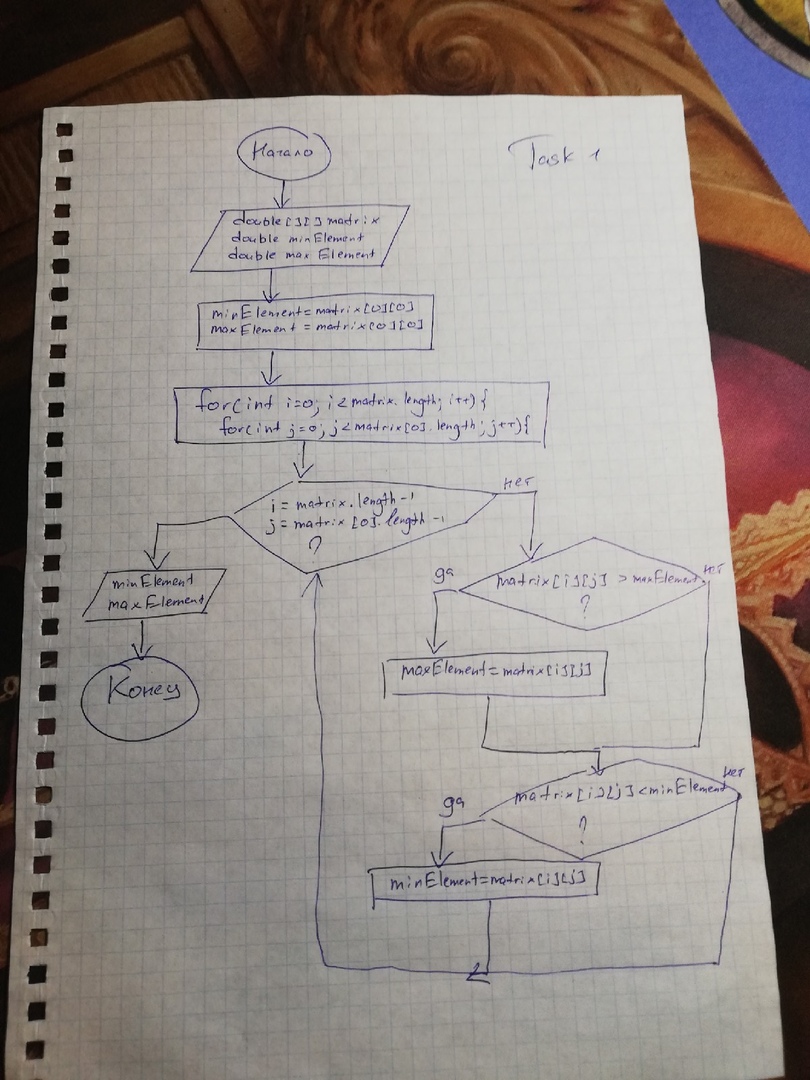 Task 1
Начало
double[][] matrix
double minElement
double maxElement
minElement=matrix[0][0]
maxElement = matrix[0][0]
for(int i=0; i<matrix.length; i++){
for(int j=0; j<matrix[0].length; j++){
i = matrix.length-1
j = matrix [0].length-1
?
нет
minElement
maxElement
Конец
matrix[i][j] > maxElement
?
да
нет
maxElement=matrix[i][j]
matrix[i][j]<minElement
?
да
нет
minElement=matrix[i][j]